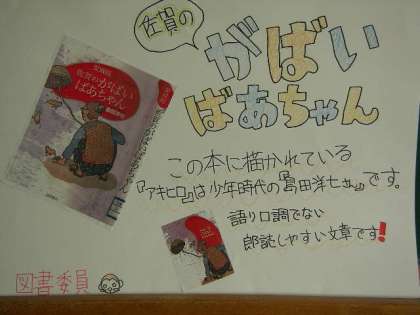 佐賀の
がばい
ばあちゃん
佐賀のがばい
ばあちゃん
この本に描かれている
『アキヒロ』は少年時代の『島田洋七さん』です。
語り口調でない
郎読しやすい文章です!
図書委員